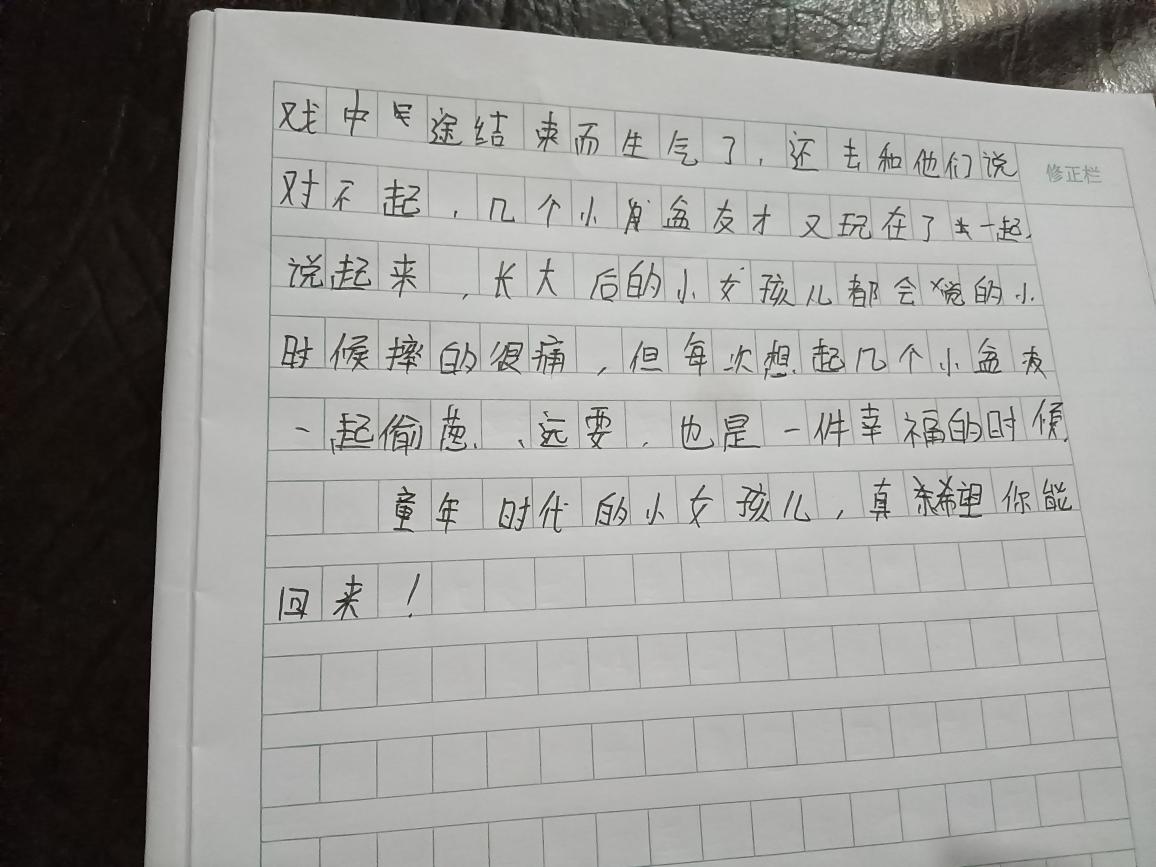 戏中途结束而生气了，还去和他们说
修正栏
对不起，几个小盆友才又玩在了一起，
说起来，长大后的小女孩儿都会觉的小
时候摔的很痛，但每次想起几个小盆友
一起偷葱、远要，也是一件幸福的时候，
童年时代的小女孩儿，真希望你能
回来！